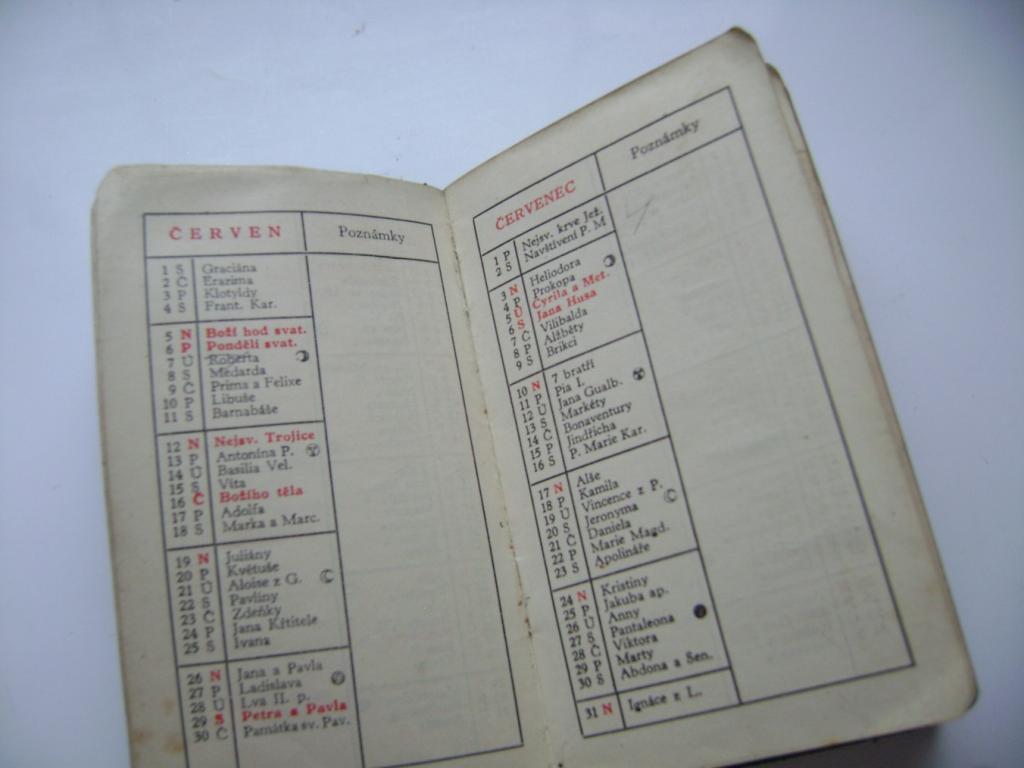 ČERVEN
Poznámky
1 S Graciána
2 Č Erazima
3 P Klotyldy
4 S Frant. Kar.
5 N Boží hod svat.
6 P Pondělí svat.
7 Ú Roberta
8 S Medarda
9 Č Prima a Felixe
10 P Libuše
11 S Barnabáše
12 N Nejsv. Trojice
13 P Antonína P.
14 Ú Basilia Vel.
15 S Víta
16 Č Božího těla
17 P Adolfa
18 S Marka a Marc.
19 N Juliány
20 P Květuše
21 Ú Aloise z G.
22 S Pavlíny
23 Č Zdeňky
24 P Jana Křtitele
25 S Ivana
26 N Jana a Pavla
27 P Ladislava
28 Ú Lva II. p.
29 S Petra a Pavla
30 Č Památka sv. Pav.
ČERVENEC
Poznámky
1 P Nejsv. krve Jež.
2 S Navštívení P. M
3 N Heliodora
4 P Prokopa
5 Ú Cyrila a Met.
6 S Jana Husa
7 Č Vilibalda
8 P Alžběty
9 S Brikcí
10 N 7 bratří
11 P Pia I.
12 Ú Jana Gualb.
13 S Markéty
14 Č Bonaventury
15 P Jindřicha
16 S P. Marie Kar.
17 N Alše
18 P Kamila
19 Ú Vincence z P.
20 S Jeronyma
21 Č Daniela
22 P Marie Magd.
23 S Apolináře
24 N Kristiny
25 P Jakuba ap.
26 Ú Anny
27 S Pantaleona
28 Č Viktora
29 P Marty
30 S Abdona a Sen.
31 N Ignáce z L.